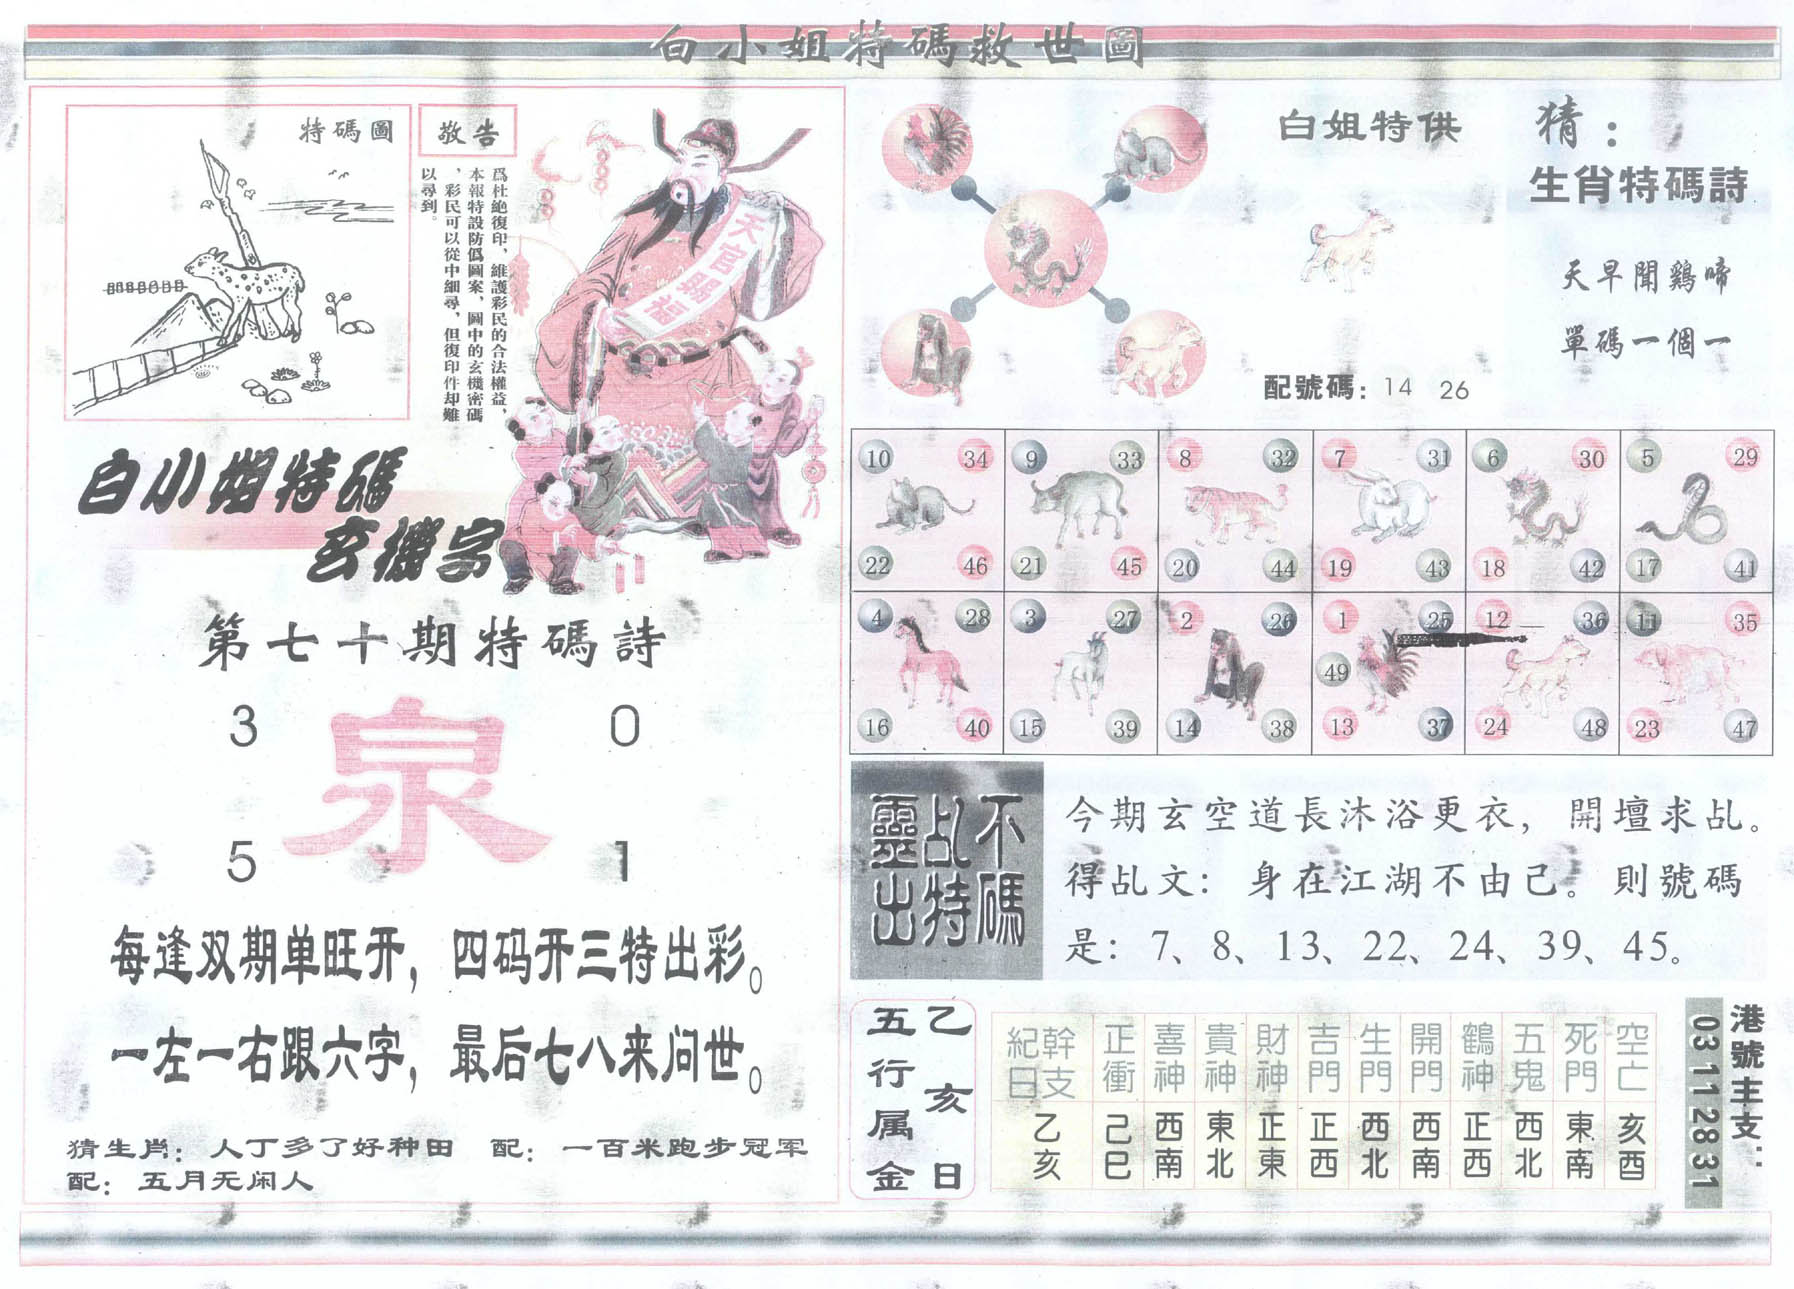 白小姐特碼救世圖
特碼圖
敬告
爲杜絶復印、維護彩民的合法權益，
本報特設防僞圖案，圖中的玄機密碼
，彩民可以從中細尋，但復印件却難
以尋到。
天官賜福
白小姐特碼
玄機字
第七十期特碼詩
3 0
泉
5 1
每逢双期单旺开，四码开三特出彩。
一左一右跟六字，最后七八来问世。
猜生肖：人丁多了好种田 配：一百米跑步冠军
配：五月无闲人
白姐特供
配號碼：14 26
猜：
生肖特碼詩
天早聞鷄啼
單碼一個一
10 34 9 33 8 32 7 31 6 30 5 29
22 46 21 45 20 44 19 43 18 42 17 41
4 28 3 27 2 26 1 25 12 36 11 35
49
16 40 15 39 14 38 13 37 24 48 23 47
不碼
乩特
靈出
今期玄空道長沐浴更衣，開壇求乩。
得乩文：身在江湖不由己。則號碼
是：7、8、13、22、24、39、45。
乙亥日
五行属金
幹支紀日 正衝 喜神 貴神 財神 吉門 生門 開門 鶴神 五鬼 死門 空亡
乙亥 己巳 西南 東北 正東 正西 西北 西南 正西 西北 東南 亥酉
港號主支：
03 11 28 31